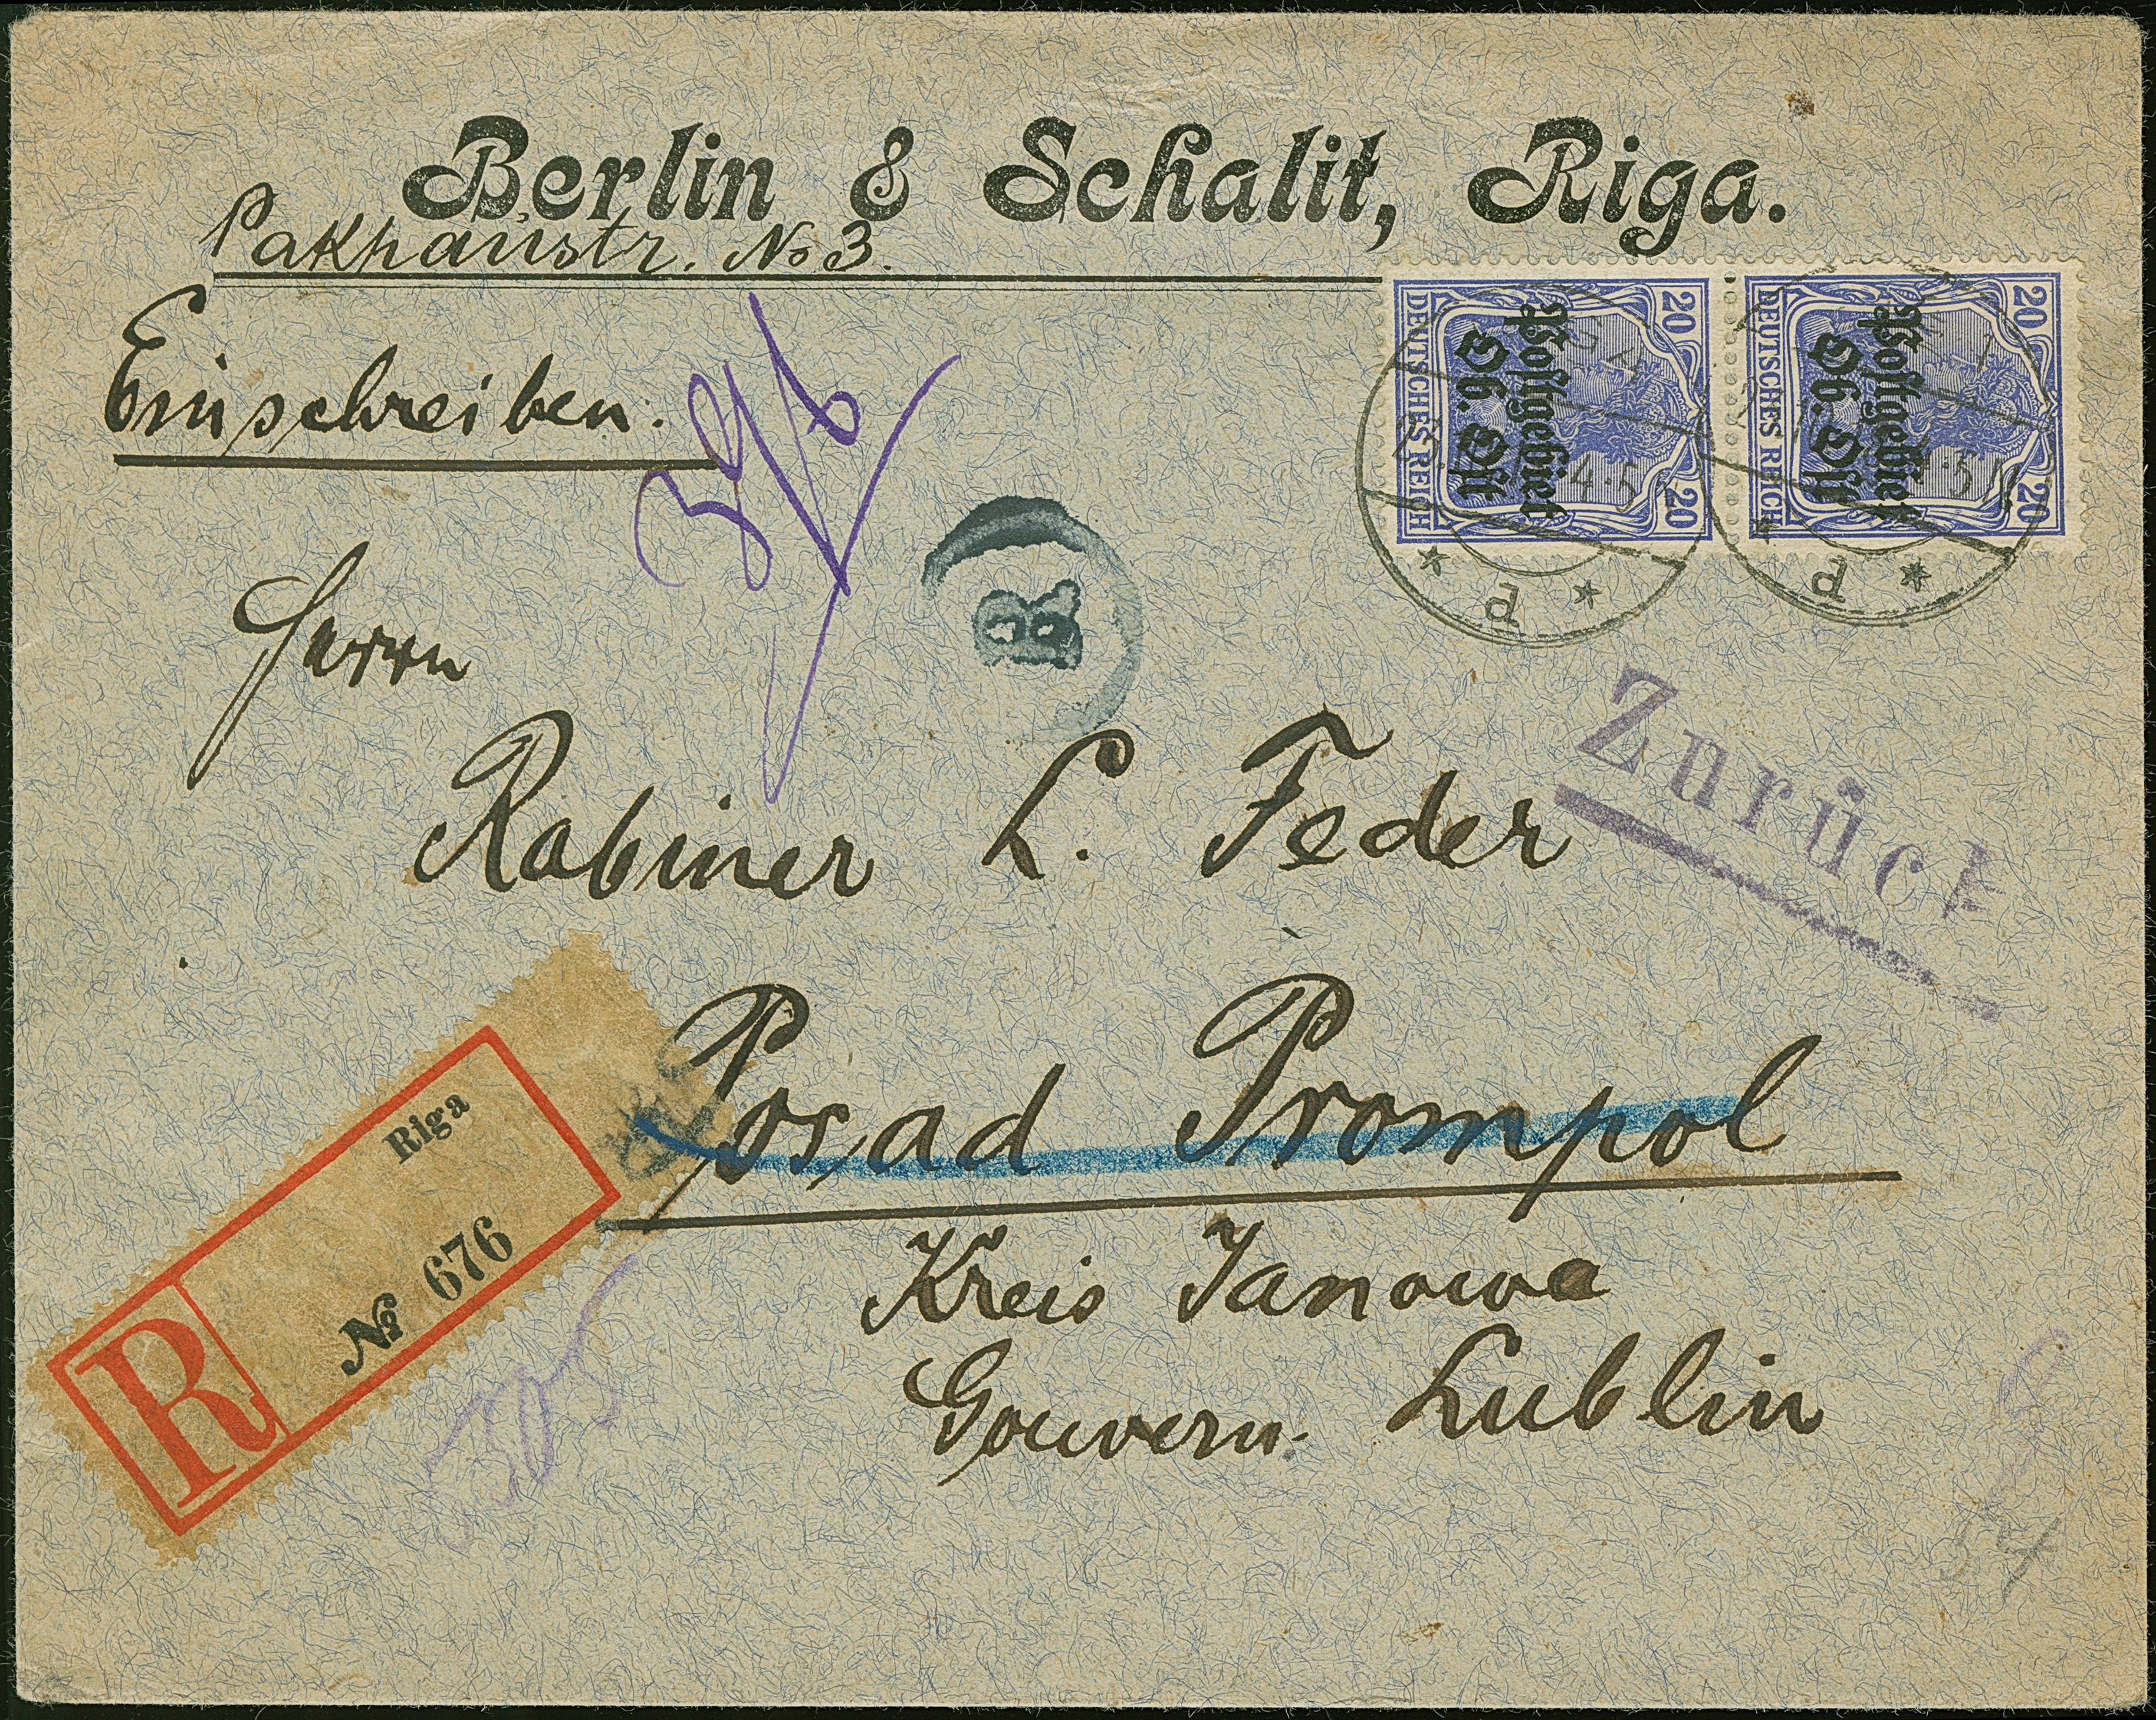 Berlin & Schalit, Riga.
Pakhausstr. No 3.
Einschreiben.
DEUTSCHES REICH
20 20
Postgebiet
Ob. Ost
DEUTSCHES REICH
20 20
Postgebiet
Ob. Ost
* d *
* d *
B
Zurück
Herrn
Rabiner L. Feder
Posad Prompol
Kreis Janowa
Gouvern. Lublin
Riga
R
№ 676